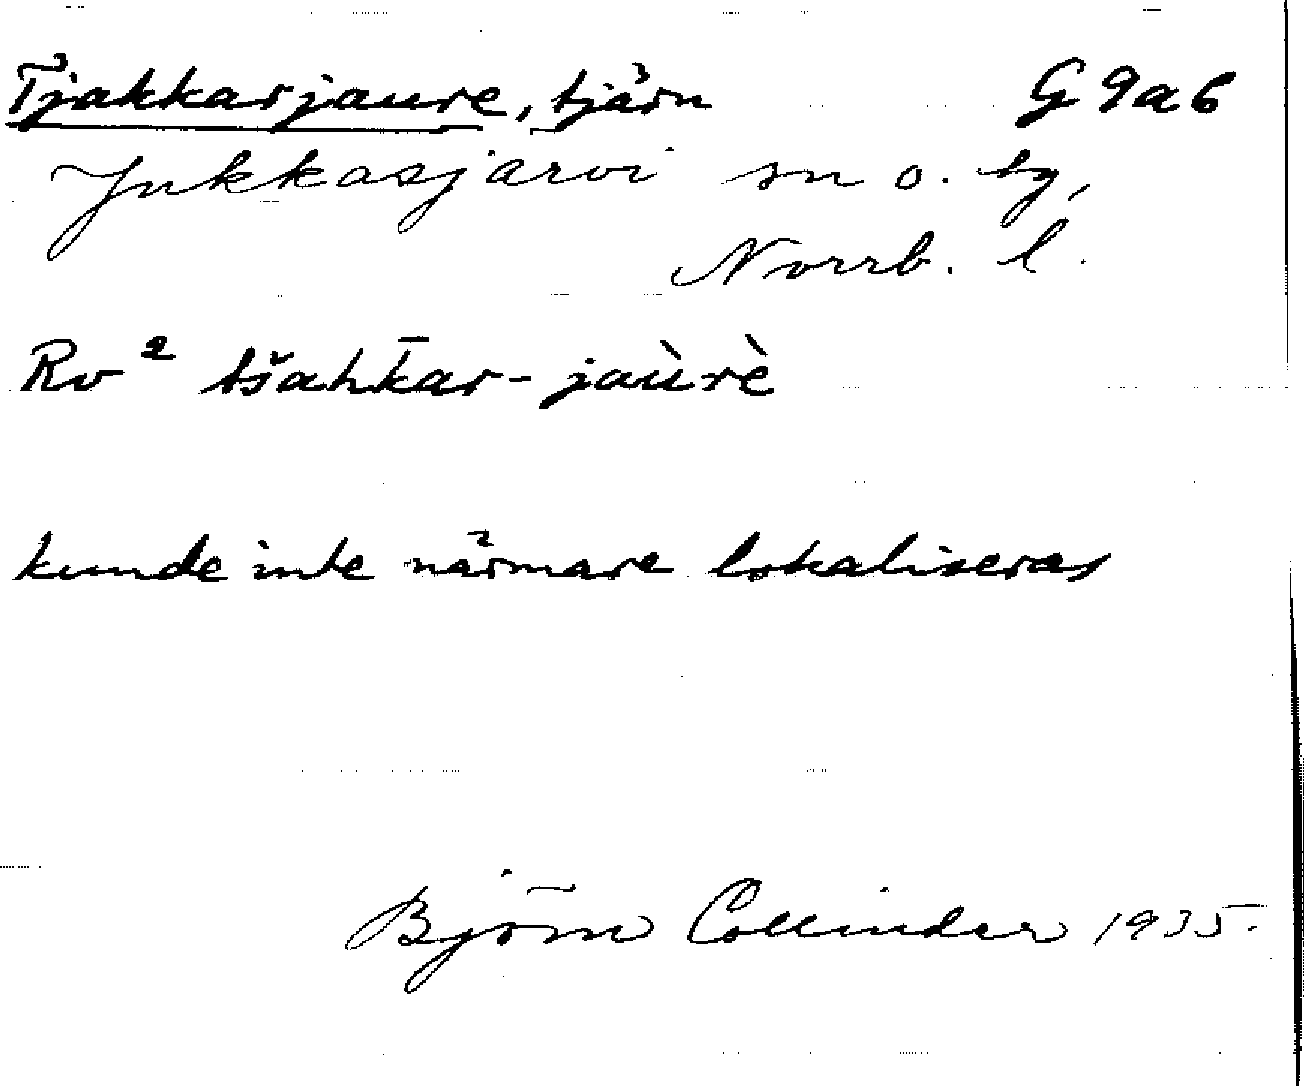 Tjakkarjaure, tjärn G 9 a b
Jukkasjärvi sn o. tg,
Norrb. l.
Rv² tšaht̄ar-jaùrè
kunde inte närmare lokaliseras
Björn Collinder 1935.